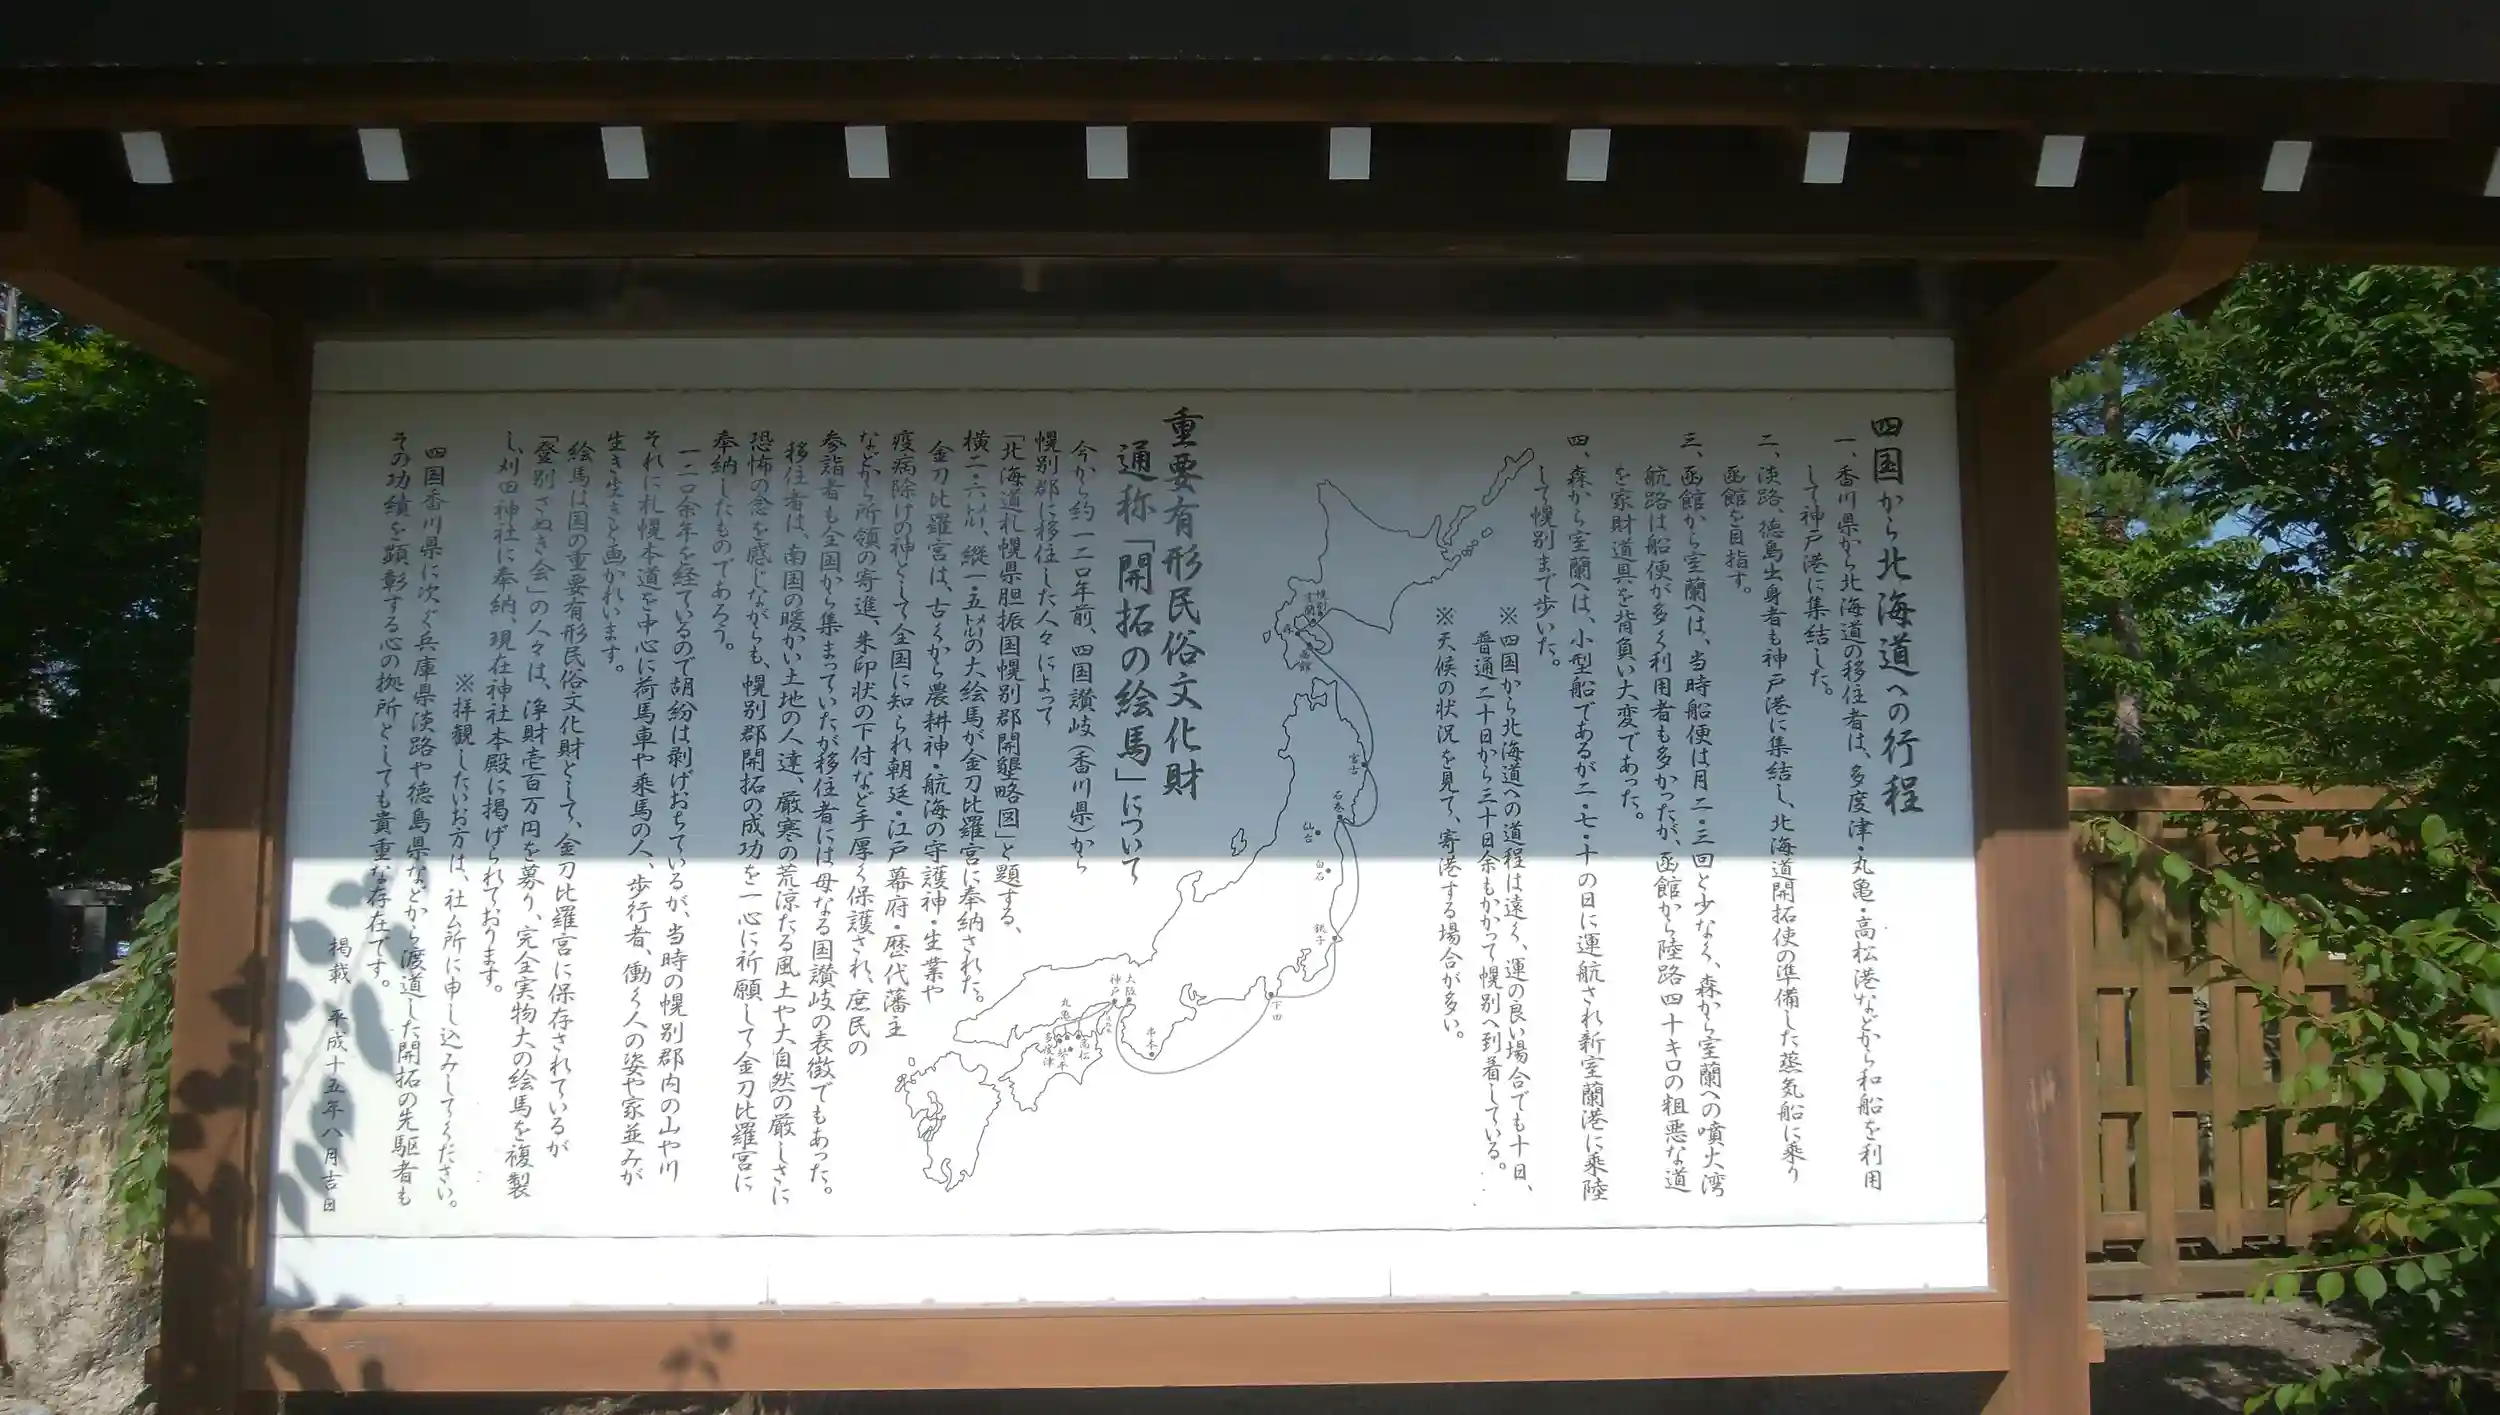 四国から北海道への行程
一、香川県から北海道の移住者は、多度津・丸亀・高松港などから和船を利用
して神戸港に集結した。
二、淡路、徳島出身者も神戸港に集結し、北海道開拓使の準備した蒸気船に乗り
函館を目指す。
三、函館から室蘭へは、当時船便は月二・三回と少なく、森から室蘭への噴火湾
航路は船便が多く利用者も多かったが、函館から陸路四十キロの粗悪な道
を家財道具を背負い大変であった。
四、森から室蘭へは、小型船であるが二・七・十の日に運航され新室蘭港に乗陸
して幌別まで歩いた。
※四国から北海道への道程は遠く、運の良い場合でも十日、
普通二十日から三十日余もかかって幌別へ到着している。
※天候の状況を見て、寄港する場合が多い。
幌別
室蘭
森
函館
宮古
石巻
仙台
白石
銚子
下田
大阪
神戸
串本
丸亀
高松
多度津
琴平
重要有形民俗文化財
通称「開拓の絵馬」について
今から約一二〇年前、四国讃岐(香川県)から
幌別郡に移住した人々によって
「北海道札幌県胆振国幌別郡開墾略図」と題する、
横二・六㍍、縦一・五㍍の大絵馬が金刀比羅宮に奉納された。
金刀比羅宮は、古くから農耕神・航海の守護神・生業や
疫病除けの神として全国に知られ朝廷・江戸幕府・歴代藩主
などから所領の寄進、朱印状の下付など手厚く保護され、庶民の
参詣者も全国から集まっていたが移住者には母なる国讃岐の表徴でもあった。
移住者は、南国の暖かい土地の人達、厳寒の荒涼たる風土や大自然の厳しさに
恐怖の念を感じながらも、幌別郡開拓の成功を一心に祈願して金刀比羅宮に
奉納したものであろう。
一二〇余年を経ているので胡紛は剥げおちているが、当時の幌別郡内の山や川
それに札幌本道を中心に荷馬車や乗馬の人、歩行者、働く人の姿や家並みが
生き生きと画かれいます。
絵馬は国の重要有形民俗文化財として、金刀比羅宮に保存されているが
「登別さぬき会」の人々は、浄財壱百万円を募り、完全実物大の絵馬を複製
し、刈田神社に奉納、現在神社本殿に掲げられております。
※拝観したいお方は、社ム所に申し込みしてください。
四国香川県に次ぐ兵庫県淡路や徳島県などから渡道した開拓の先駆者も
その功績を顕彰する心の拠所としても貴重な存在です。
掲載　平成十五年八月吉日